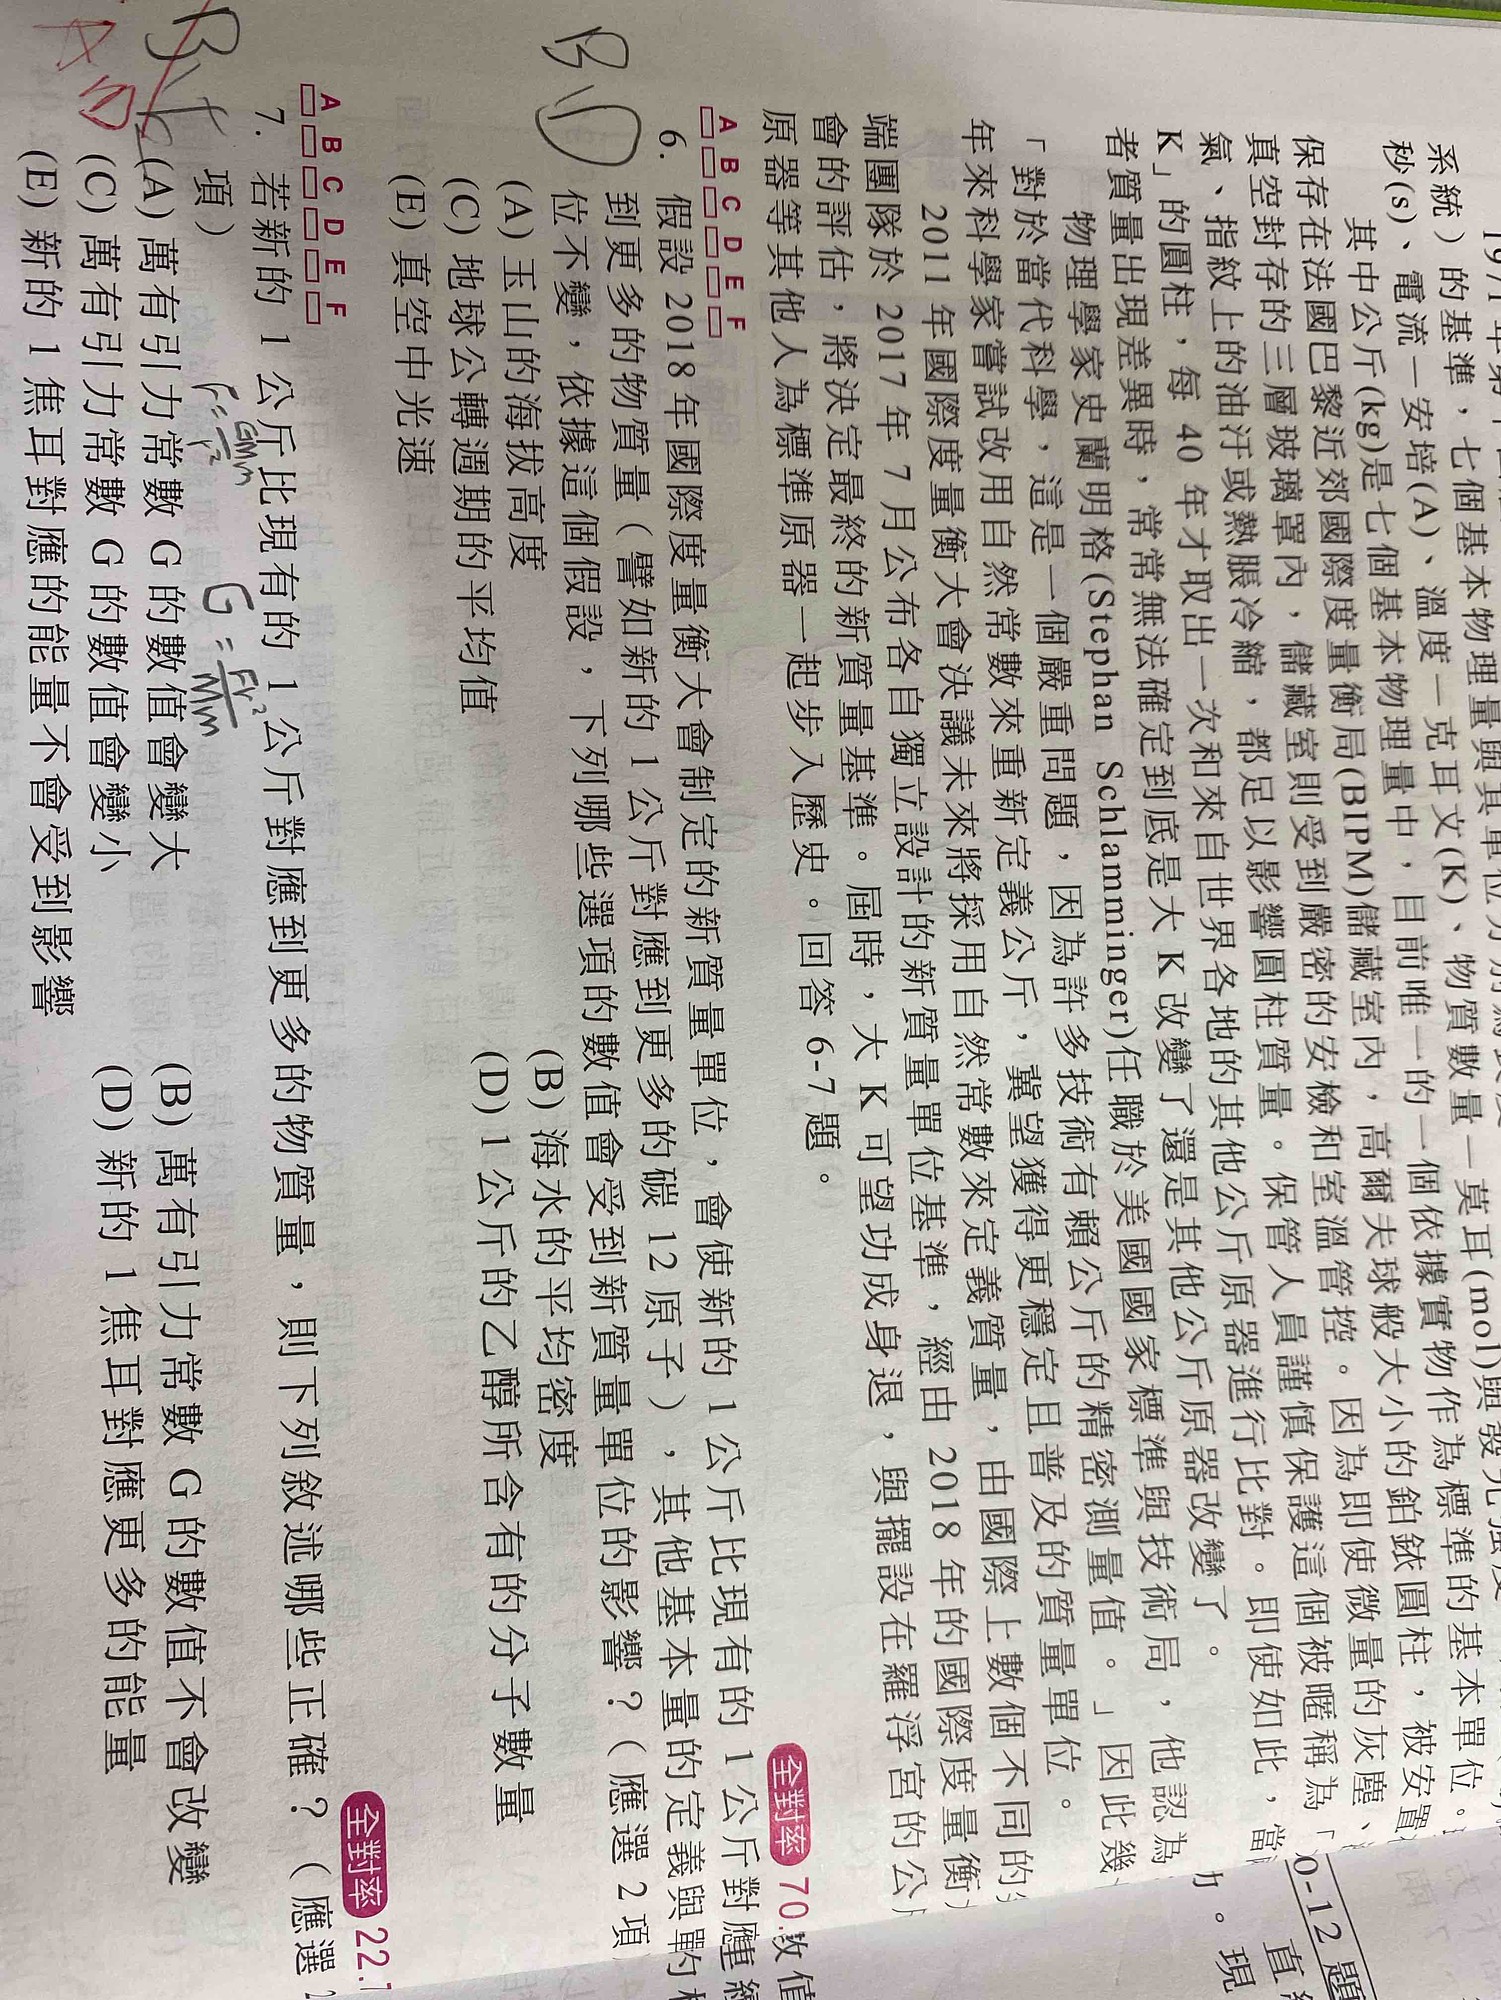 系統）的基準，七個基本物理量與其單位分別為長度
秒(s)、電流－安培(A)、溫度－克耳文(K)、物質數量－莫耳(mol)與發光強度
其中公斤(kg)是七個基本物理量中，目前唯一的一個依據實物作為標準的基本單位。
保存在法國巴黎近郊國際度量衡局(BIPM)儲藏室內，高爾夫球般大小的鉑銥圓柱，被安置
真空封存的三層玻璃罩內，儲藏室則受到嚴密的安檢和室溫管控。因為即使微量的灰塵、
氣、指紋上的油汙或熱脹冷縮，都足以影響圓柱質量。保管人員謹慎保護這個被暱稱為「
K」的圓柱，每 40 年才取出一次和來自世界各地的其他公斤原器進行比對。即使如此，當
者質量出現差異時，常常無法確定到底是大 K 改變了還是其他公斤原器改變了。
物理學家史蘭明格(Stephan Schlamminger)任職於美國國家標準與技術局，他認為
「對於當代科學，這是一個嚴重問題，因為許多技術有賴公斤的精密測量值。」因此幾
年來科學家嘗試改用自然常數來重新定義公斤，冀望獲得更穩定且普及的質量單位。
2011 年國際度量衡大會決議未來將採用自然常數來定義質量，由國際上數個不同的
端團隊於 2017 年 7 月公布各自獨立設計的新質量單位基準，經由 2018 年的國際度量衡
會的評估，將決定最終的新質量基準。屆時，大 K 可望功成身退，與擺設在羅浮宮的公
原器等其他人為標準原器一起步入歷史。回答 6-7 題。
A B C D E F
全對率 70.
6. 假設 2018 年國際度量衡大會制定的新質量單位，會使新的 1 公斤比現有的 1 公斤對應
到更多的物質量（譬如新的 1 公斤對應到更多的碳 12 原子），其他基本量的定義與單
位不變，依據這個假設，下列哪些選項的數值會受到新質量單位的影響？（應選 2 項
B D
(A) 玉山的海拔高度
(B) 海水的平均密度
(C) 地球公轉週期的平均值
(D) 1 公斤的乙醇所含有的分子數量
(E) 真空中光速
A B C D E F
全對率 22.7
7. 若新的 1 公斤比現有的 1 公斤對應到更多的物質量，則下列敘述哪些正確？（應選 2
項）
F=GMm/r²
G=Fr²/Mm
A D
(A) 萬有引力常數 G 的數值會變大
(B) 萬有引力常數 G 的數值不會改變
(C) 萬有引力常數 G 的數值會變小
(D) 新的 1 焦耳對應更多的能量
(E) 新的 1 焦耳對應的能量不會受到影響
0-12 題